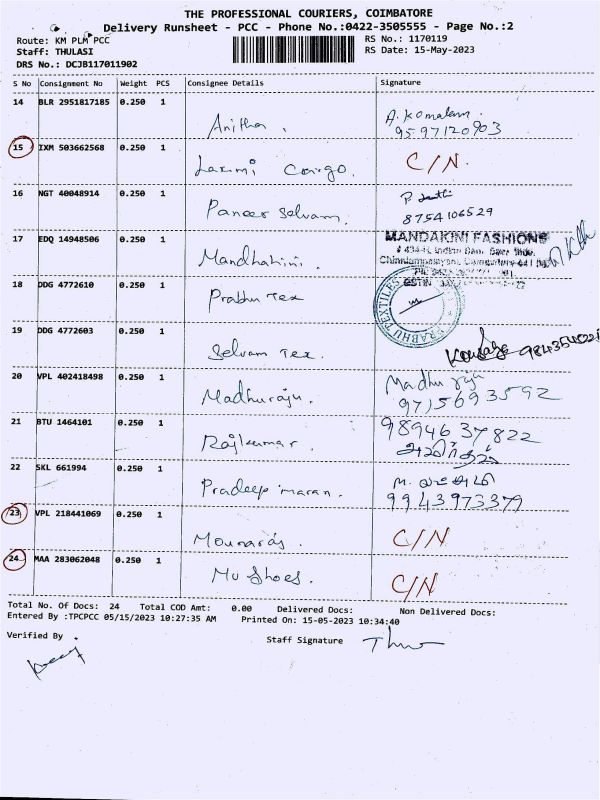 THE PROFESSIONAL COURIERS, COIMBATORE
Delivery Runsheet - PCC - Phone No.:0422-3505555 - Page No.:2
Route: KM PLM PCC
RS No.: 1170119
Staff: THULASI
RS Date: 15-May-2023
DRS No.: DCJB117011902
S No Consignment No Weight PCS Consignee Details Signature
14 BLR 2951817185 0.250 1 Anitha. A. Komalam
9597120903
15 IXM 503662568 0.250 1 Laxmi Cargo. C/N.
16 NGT 40048914 0.250 1 Paneer Selvam.
8754106529
17 EDQ 14948506 0.250 1 Mandhahini. MANDAKINI FASHIONS
18 DDG 4772610 0.250 1 Prabhu Tex PRABHU TEXTILES
19 DDG 4772603 0.250 1 Selvam Tex.
20 VPL 402418498 0.250 1 Madhuraju. Madhu raju
9715693592
21 BTU 1464101 0.250 1 Rajkumar. 9894637822
22 SKL 661994 0.250 1 Pradeep maran.
9943973379
23 VPL 218441069 0.250 1 C/N
24 MAA 283062048 0.250 1 Mu Shoes. C/N
Total No. Of Docs: 24 Total COD Amt: 0.00 Delivered Docs: Non Delivered Docs:
Entered By :TPCPCC 05/15/2023 10:27:35 AM Printed On: 15-05-2023 10:34:40
Verified By Staff Signature